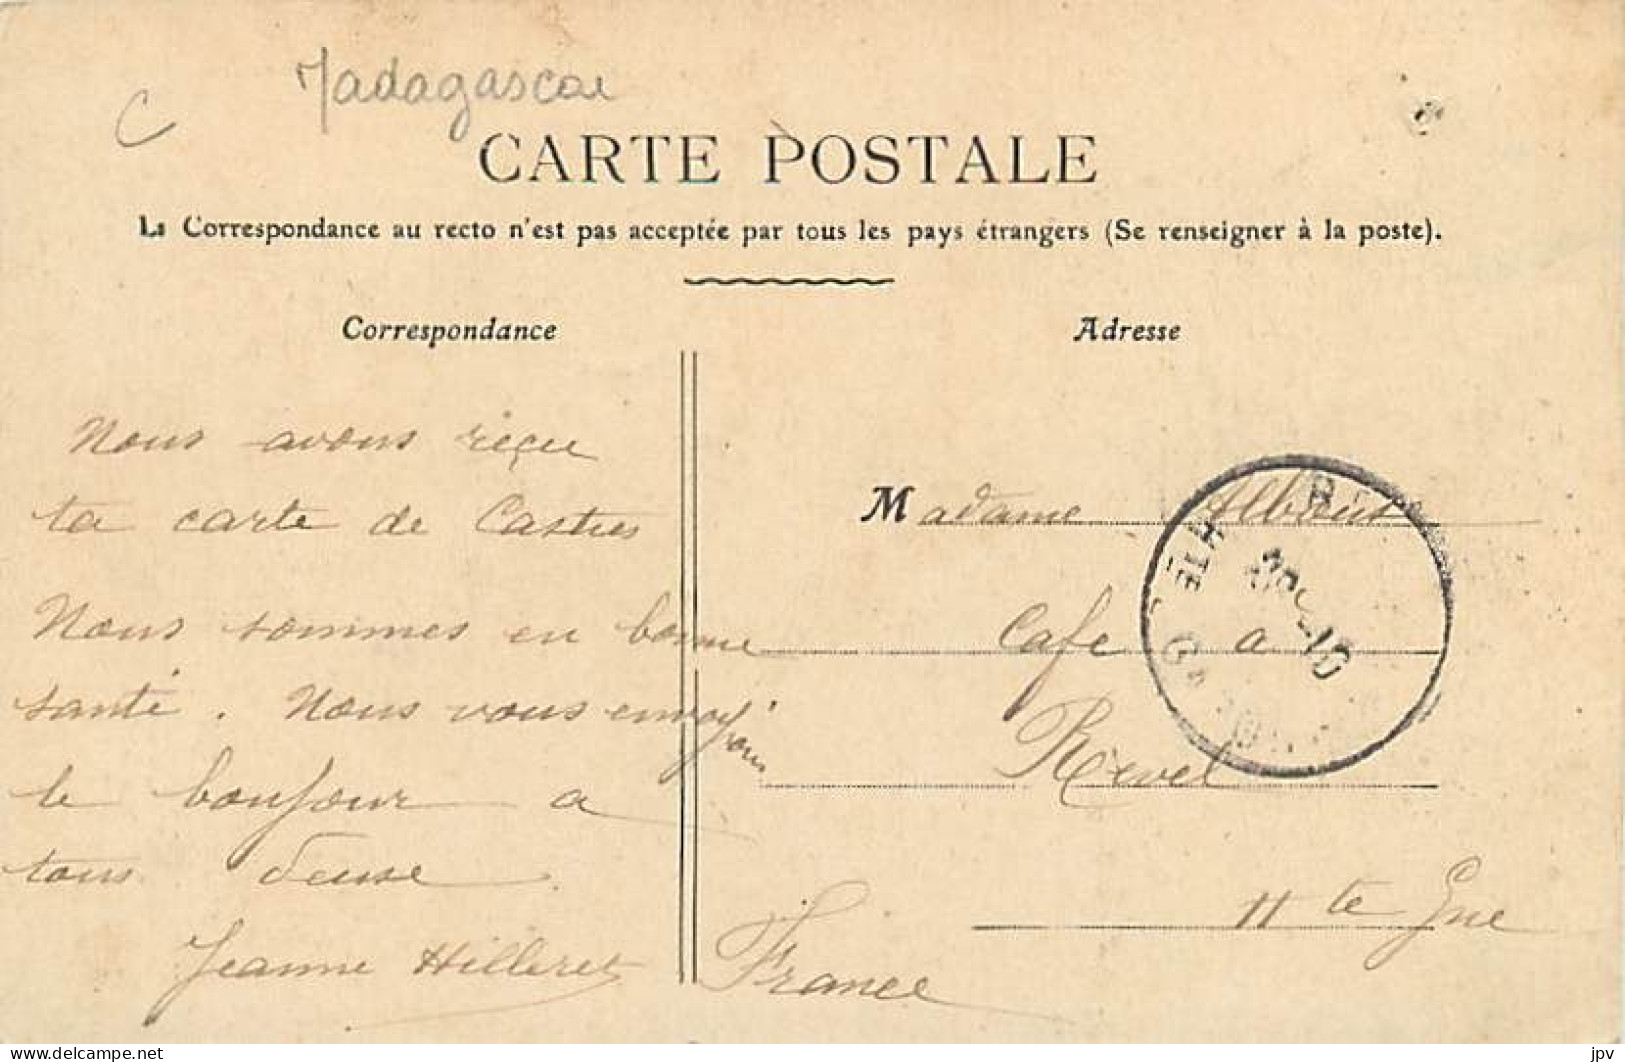 C
Madagascar
CARTE POSTALE
La Correspondance au recto n'est pas acceptée par tous les pays étrangers (Se renseigner à la poste).
Correspondance
Nous avons reçu
ta carte de Castres
Nous sommes en bonne
santé. Nous vous envoyons
le bonjour a
tous deuse.
Jeanne Hilleret
Adresse
Madame
Cafe a
Revel
Hte Gne
France
HTE G
10
delcampe.net
jpv